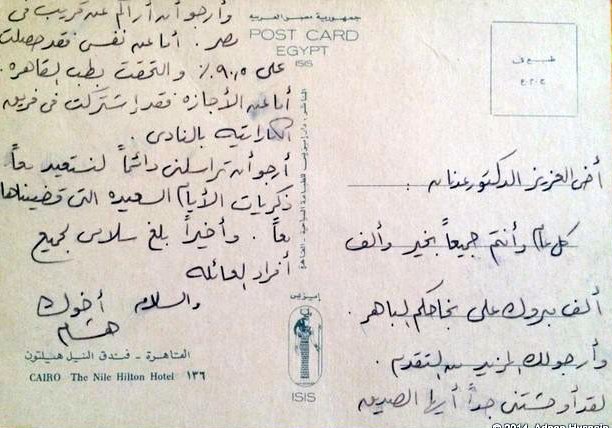 أخى العزيز الدكتور عدنان :
كل عام وأنتم جميعاً بخير وألف
ألف مبروك على نجاحكم الباهر .
وأرجو لك المزيد من التقدم .
لقد أوحشتنى جداً أيها الصديق
وأرجو أن أراكم عن قريب فى
مصر . أما عن نفسى فقد حصلت
على ٩٠,٥ ٪ والتحقت بطب القاهرة .
أما عن الأجازه فقد إشتركت فى فريق
الكاراتيه بالنادى .
أرجو أن تراسلنى دائماً لنستعيد معاً
ذكريات الأيام السعيده التى قضيناها
معاً . وأخيراً بلغ سلامى لجميع
أفراد العائله
والسلام أخوك
هشام
جمهورية مصر العربية
POST CARD
EGYPT
ISIS
القاهرة - فندق النيل هيلتون
CAIRO The Nile Hilton Hotel ١٣٦
إيزيس
ISIS
© 2014, Adnan Hussein